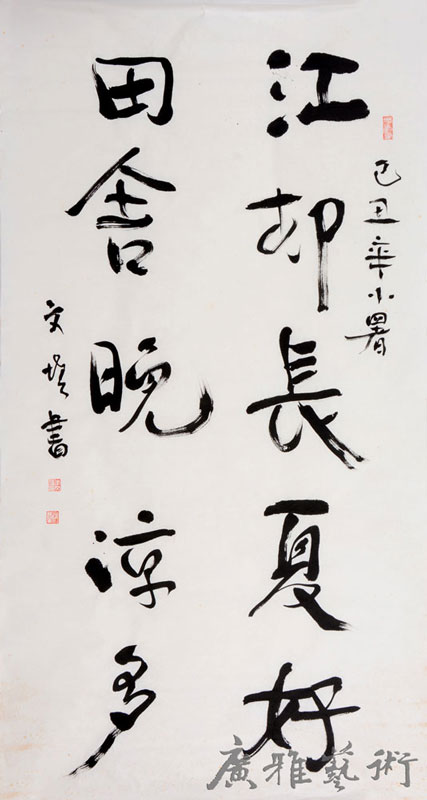 己丑年小暑
江邨長夏好
田舍晚涼多
文 書
廣雅藝術